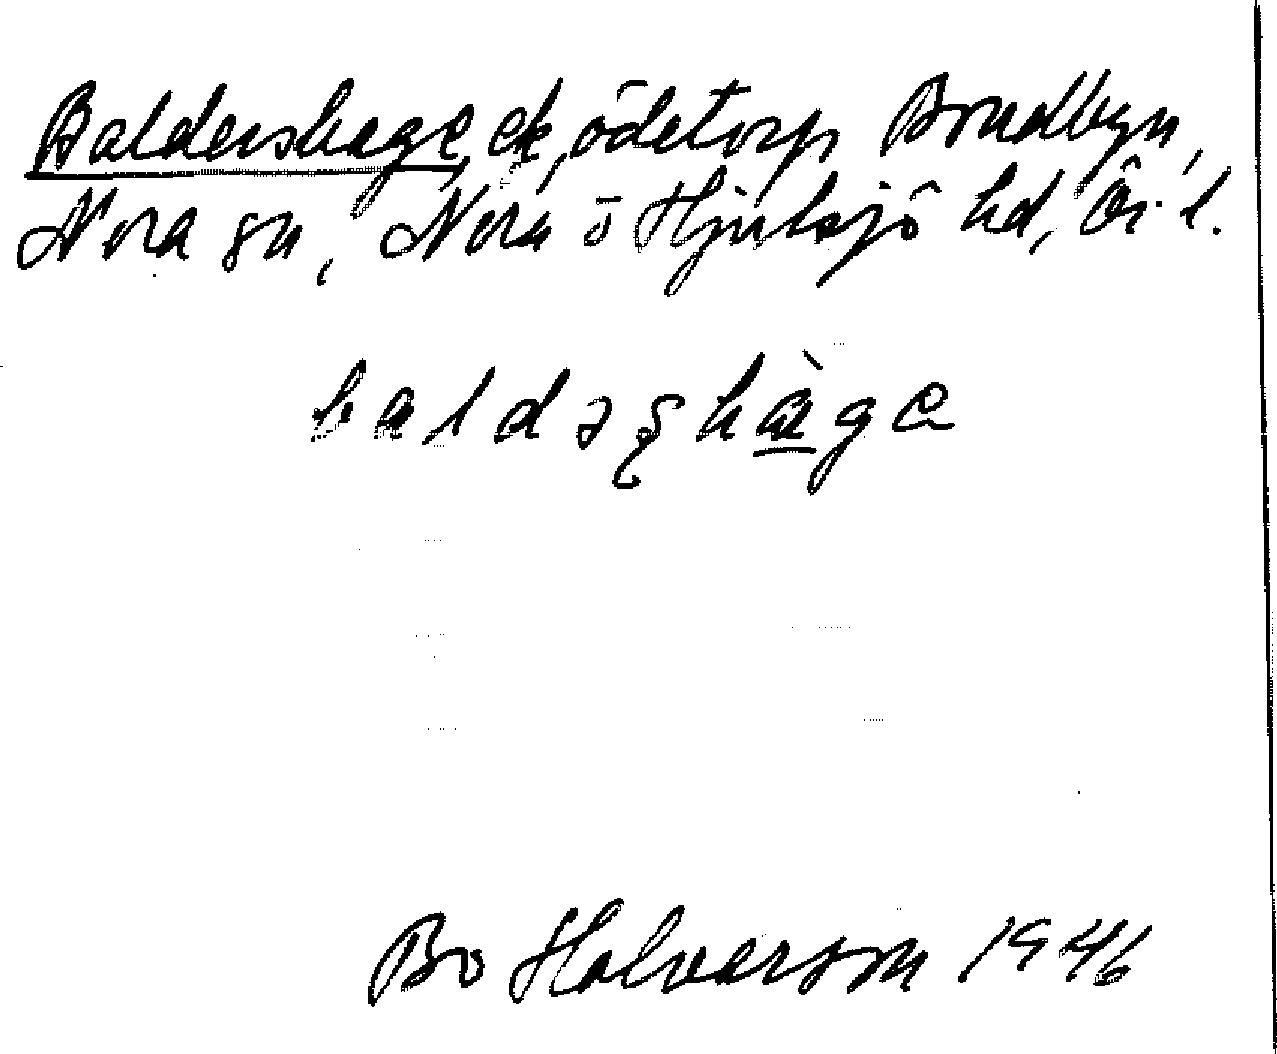 Baldershage, ek, ödetorp Brudbyn,
Nora sn, Nora o Hjulsjö hd, Ör. l.
baldəʂhàge
Bo Halvarson 1946